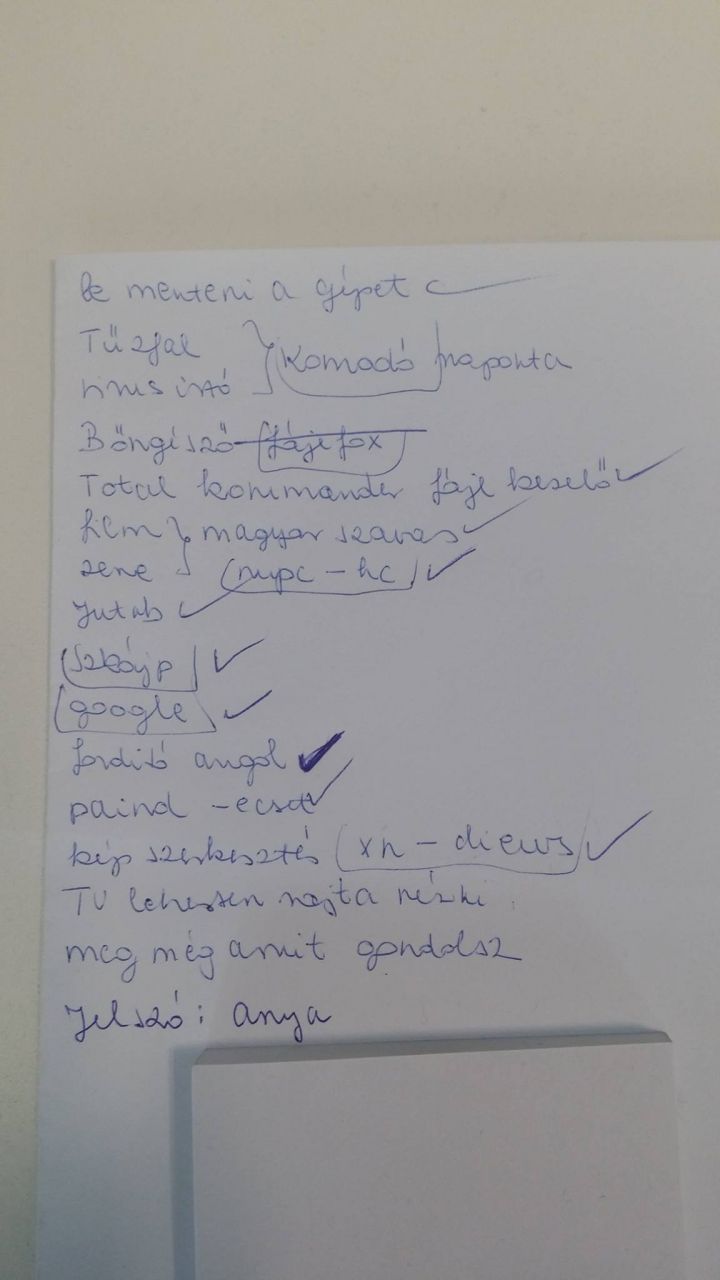 le menteni a gépet
Tűzfal
vírus irtó } Komodó naponta
Böngésző fájefox
Total kommander fájl keselő
film } magyar szavas
zene (mpc - hc)
Jutub
szkájp
google
forditó angol
paind - ecset
kép szerkesztés (xn - diews)
TV lehessen rajta nézni
meg még amit gondolsz
Jelszó: anya